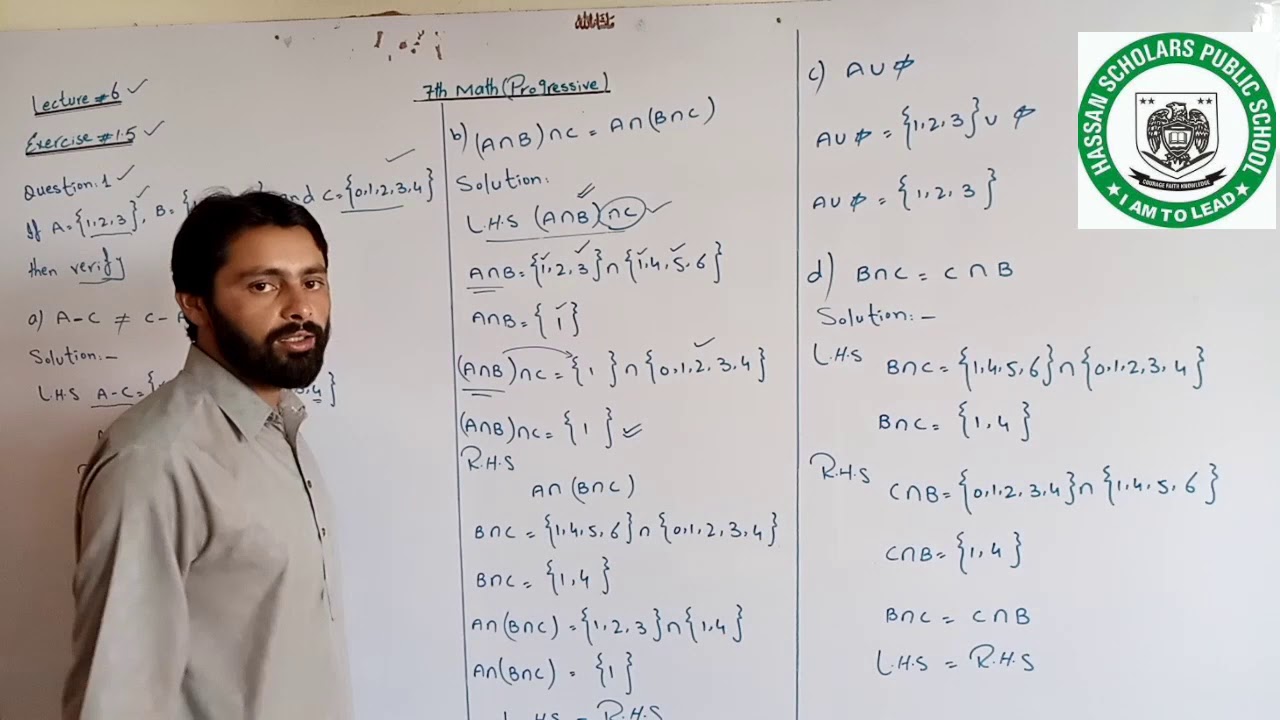 ماشاءالله
Lecture #6 ✓
Exercise #1.5 ✓
Question: 1 ✓
If A={1,2,3}, B={ and C={0,1,2,3,4}
then verify
a) A-C ≠ C-A
Solution:-
L.H.S A-C={ ,4}
7th Math (Progressive)
b) (A∩B)∩C = A∩(B∩C)
Solution:
L.H.S (A∩B)∩C ✓
A∩B={1,2,3}∩{1,4,5,6}
A∩B={1}
(A∩B)∩C={1}∩{0,1,2,3,4}
(A∩B)∩C={1}
R.H.S
A∩(B∩C)
B∩C={1,4,5,6}∩{0,1,2,3,4}
B∩C={1,4}
A∩(B∩C)={1,2,3}∩{1,4}
A∩(B∩C) = {1}
L.H.S = R.H.S
c) A∪φ
A∪φ = {1,2,3}∪φ
A∪φ = {1,2,3}
d) B∩C = C∩B
Solution:-
L.H.S B∩C={1,4,5,6}∩{0,1,2,3,4}
B∩C={1,4}
R.H.S C∩B={0,1,2,3,4}∩{1,4,5,6}
C∩B={1,4}
B∩C = C∩B
L.H.S = R.H.S
HASSAN SCHOLARS PUBLIC SCHOOL
COURAGE FAITH KNOWLEDGE
★ I AM TO LEAD ★